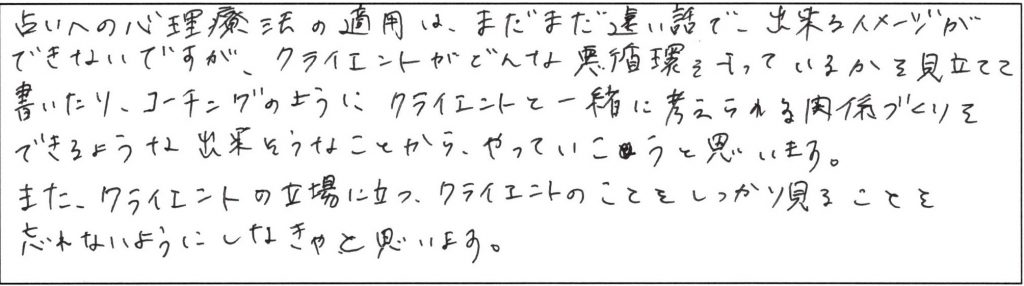 占いへの心理療法の適用は、まだまだ遠い話で、出来るイメージが
できないですが、クライエントがどんな悪循環を持っているかを見立てて
書いたり、コーチングのように クライエントと一緒に考えられる関係づくりを
できるような 出来そうなことから、やっていこうと思います。
また、クライエントの立場に立つ、クライエントのことをしっかり見ることを
忘れないようにしなきゃと思います。